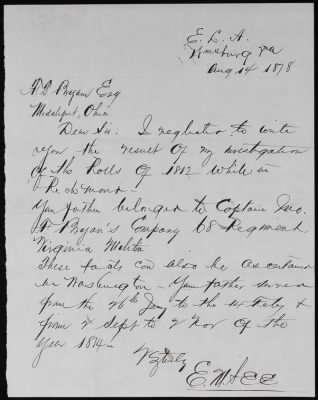 E. L. A.
Wmsburg Va
Aug 14 1878
A D Bryan Esq
Middleport, Ohio
Dear Sir: I neglected to write
you the result of my investigation
of the Rolls of 1812 while in
Richmond -
Your father belonged to Captain Jno.
Bryan's Company 68 Regiment
Virginia Militia
These facts can also be ascertained
in Washington - Your father served
from the 26th Jany to the 14 Feby &
from 2 Sept to 2 Nov of the
year 1814 -